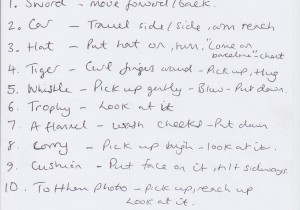 1. Sword - move forward/back.
2. Car - Travel side/side, arm reach
3. Hat - Put hat on, turn, "come on
baseline" - chest
4. Tiger - Curl fingers around - Pick up, Hug
5. Whistle - Pick up gently - Blow - Put down.
6. Trophy - Look at it
7. A flannel - wash cheeks - Put down
8. Lorry - Pick up - look at it.
9. Cushion - Put face on it, tilt sideways.
10. Tottenham photo - pick up, reach up
Look at it.